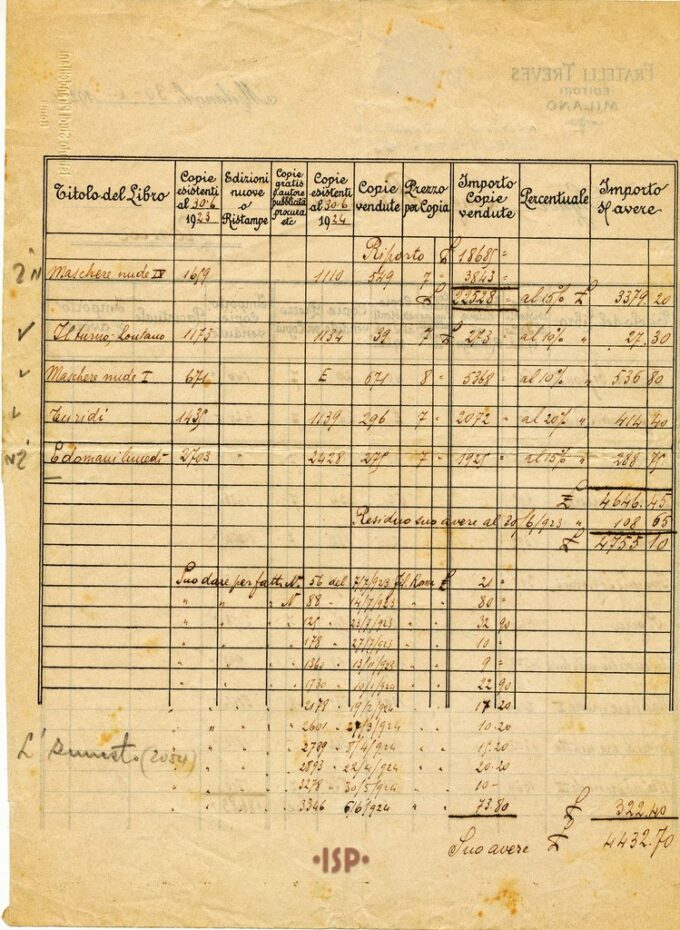 FRATELLI TREVES
EDITORI
MILANO
Titolo del Libro | Copie esistenti al 30·6 1923 | Edizioni nuove o Ristampe | Copie gratis l'autore pubblicità procura etc | Copie esistenti al 30·6 1924 | Copie vendute | Prezzo per Copia | Importo Copie vendute | Percentuale | Importo s/ avere
Riporto £ 18685 =
Maschere nude IV 1659 1110 549 7 = 3843 =
£ 22528 = al 15% £ 3379.20
Il turno; Lontano 1173 1134 39 7 = £ 273 = al 10% " 27.30
Maschere nude I 671 E 671 8 = 5368 = al 10% " 536 80
Terzetti 1435 1139 296 7 = 2072 = al 20% " 414 40
N2 E domani lunedì 2703 2428 275 7 = 1925 = al 15% " 288 75
£ 4646.45
Residuo suo avere al 30/6/923 " 108 65
£ 4755 10
Suo dare per fatt. N. 56 del 7/7/923 fil. Roma £ 21 =
" " " N 88 " 14/7/923 " " 80 =
" " " 125 " 23/7/923 " " 32 90
" " " 178 " 27/7/923 " " 10 =
" " " 1360 " 13/11/923 " " 9 =
" " " 1730 " 10/1/924 " " 22 90
" " " 2178 " 19/2/924 " " 17 20
" " " 2601 " 27/3/924 " " 10.20
" " " 2789 " 8/4/924 " " 15.20
" " " 2893 " 22/4/924 20.20
" " 3278 " 30/5/924 10 =
" " 3346 6/6/924 " " 73.80 £ 322.40
Suo avere £ 4432.70
(2054)
·ISP·